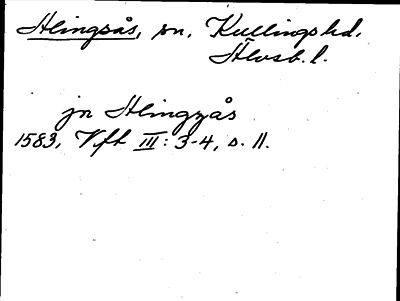 Alingsås, sn, Kullings hd,
Älvsb. l.
jn Alingzås
1583, Vft III: 3-4, s. 11.